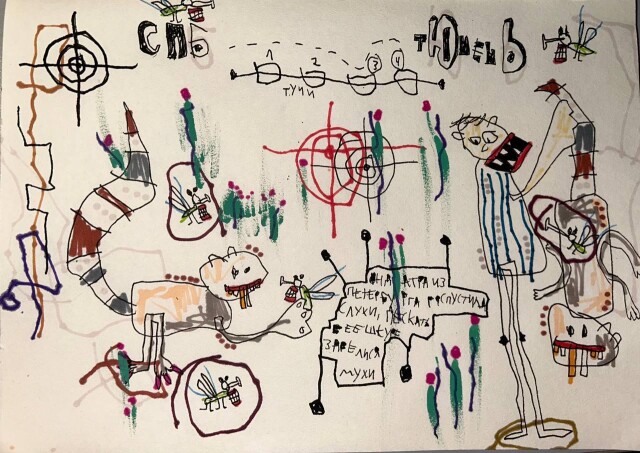 СПБ
тЮменЬ
1 2 3 4
ТУЧИ
ОНДАТРА ИЗ
ПЕТЕРБУРГА РАСПУСТИЛА
СЛУХИ, ДЕСКАТЬ
В ЕЕ ШКУРЕ
ЗАВЕЛИСЯ
МУХИ